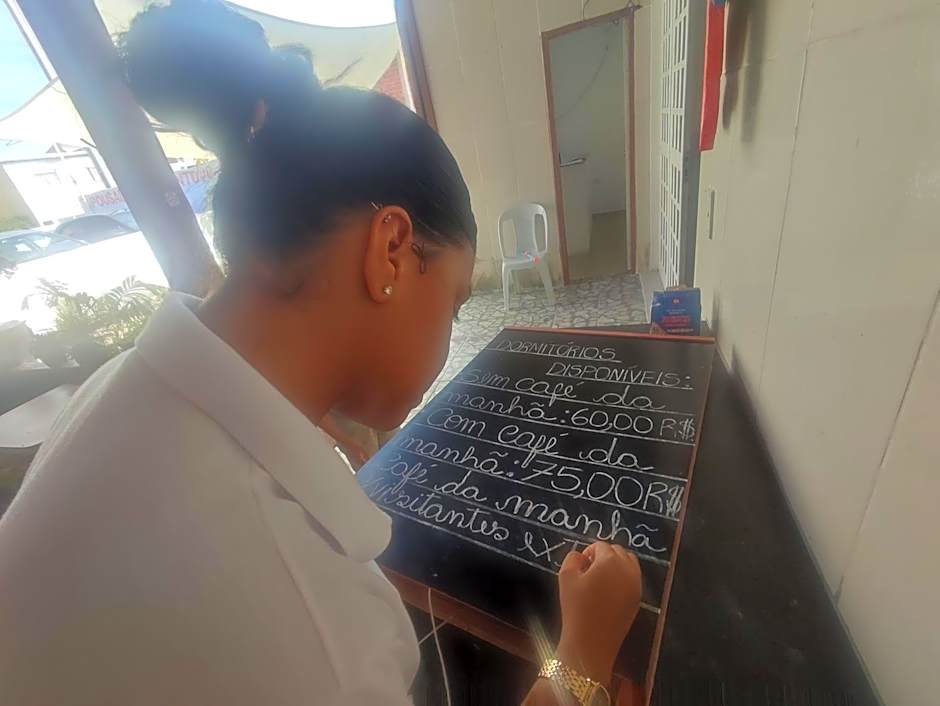 DORMITÓRIOS
DISPONÍVEIS:
Sem café da
manhã: 60,00 R$
Com café da
manhã: 75,00 R$
Café da manhã
visitantes ex